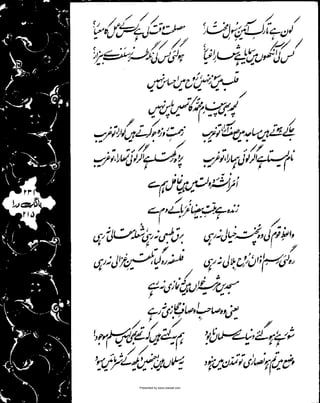 کون ہے تارکِ آئینِ رسولِ مختارؐ؟ مصلحت وقت کی ہے کس کے عمل کا معیار؟
کس کی آنکھوں میں سمایا ہے شعارِ اغیار؟ ہو گئی کس کی نگہ طرزِ سلف سے بیزار؟
قلب میں سوز نہیں، روح میں احساس نہیں
کچھ بھی پیغامِ محمدؐ کا تمھیں پاس نہیں
جا کے ہوتے ہیں مساجد میں صف آرا تو غریب زحمتِ روزہ جو کرتے ہیں گوارا تو غریب
نام لیتا ہے اگر کوئی ہمارا تو غریب پردہ رکھتا ہے اگر کوئی تمھارا تو غریب
اُمَرا نشۂ دولت میں ہیں غافل ہم سے
زندہ ہے ملّتِ بیضا غُرَبا کے دم سے
واعظِ قوم کی وہ پختہ خیالی نہ رہی برقِ طبعی نہ رہی، شعلہ مقالی نہ رہی
رہ گئی رسمِ اذاں، روحِ بلالیؓ نہ رہی فلسفہ رہ گیا، تلقینِ غزالیؒ نہ رہی
مسجدیں مرثیہ خواں ہیں کہ نمازی نہ رہے
یعنی وہ صاحبِ اوصافِ حجازی نہ رہے
شور ہے ہو گئے دنیا سے مسلماں نابود ہم یہ کہتے ہیں کہ تھے بھی کہیں مسلم موجود!
وضع میں تم ہو نصاریٰ تو تمدّن میں ہنود یہ مسلماں ہیں! جنھیں دیکھ کے شرمائیں یہود
۲۳۱
بانگِ درا
۲۱۵